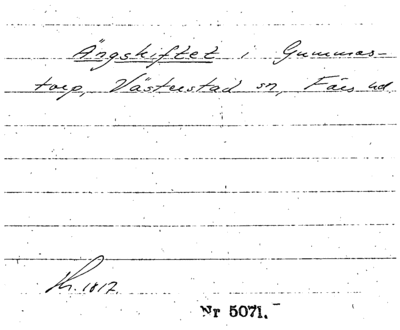 Ängskiftet i Gummas-
torp, Västerstad sn, Färs hd
Kr. 1817.
Nr 5071.